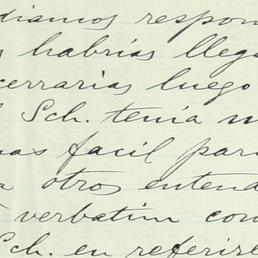 diamos respon
habrías lleg
cerrarias luego
Sch. tenía m
as facil par
a otros entend
verbatim con
Sch. en referirs